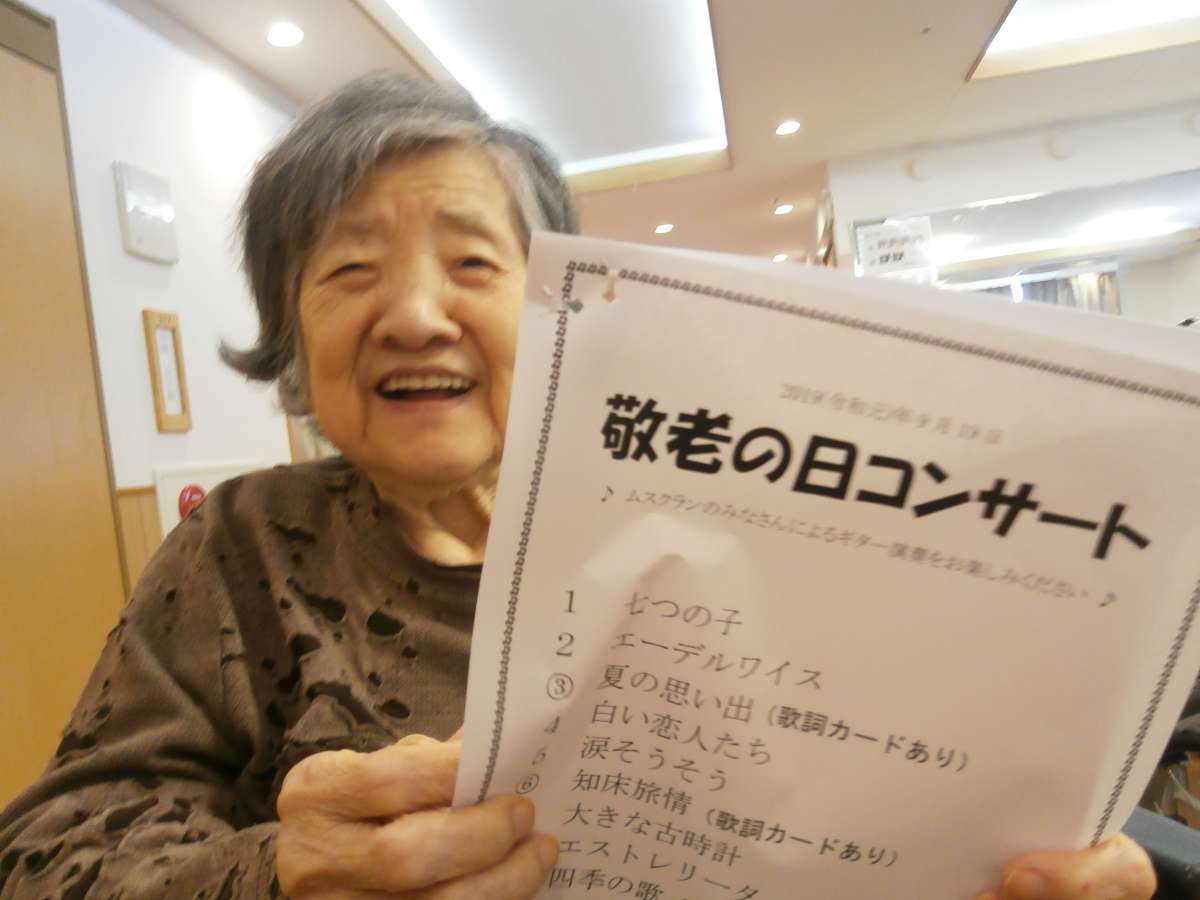 2019(令和元)年9月19日
敬老の日コンサート
♪ ムスクランのみなさんによるギター演奏をお楽しみください ♪
1 七つの子
2 エーデルワイス
③ 夏の思い出（歌詞カードあり）
4 白い恋人たち
5 涙そうそう
⑥ 知床旅情（歌詞カードあり）
大きな古時計
エストレリータ
四季の歌